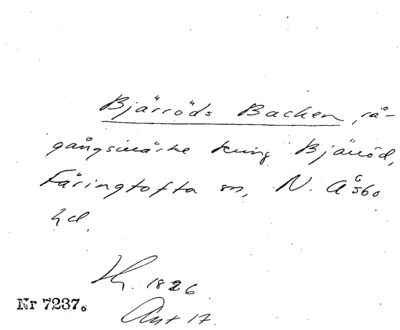 Bjärröds Backen, rå-
gångsmärke kring Bjärröd,
Färingtofta sn, N. Åsbo
hd.
Hy. 1826
Ant 17.
Nr 7237.